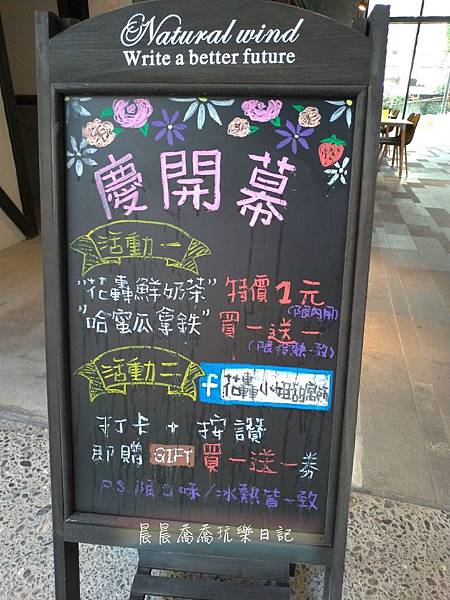 Natural wind
Write a better future
慶開幕
活動一
"花轟鮮奶茶" 特價1元
(限內用)
"哈蜜瓜拿鐵" 買一送一
(限冰熱一致)
活動二 f 花轟小姐甜窩坊
打卡 + 按讚
即贈 GIFT 買一送一券
P.S 限口味/冰熱皆一致
晨晨喬喬玩樂日記